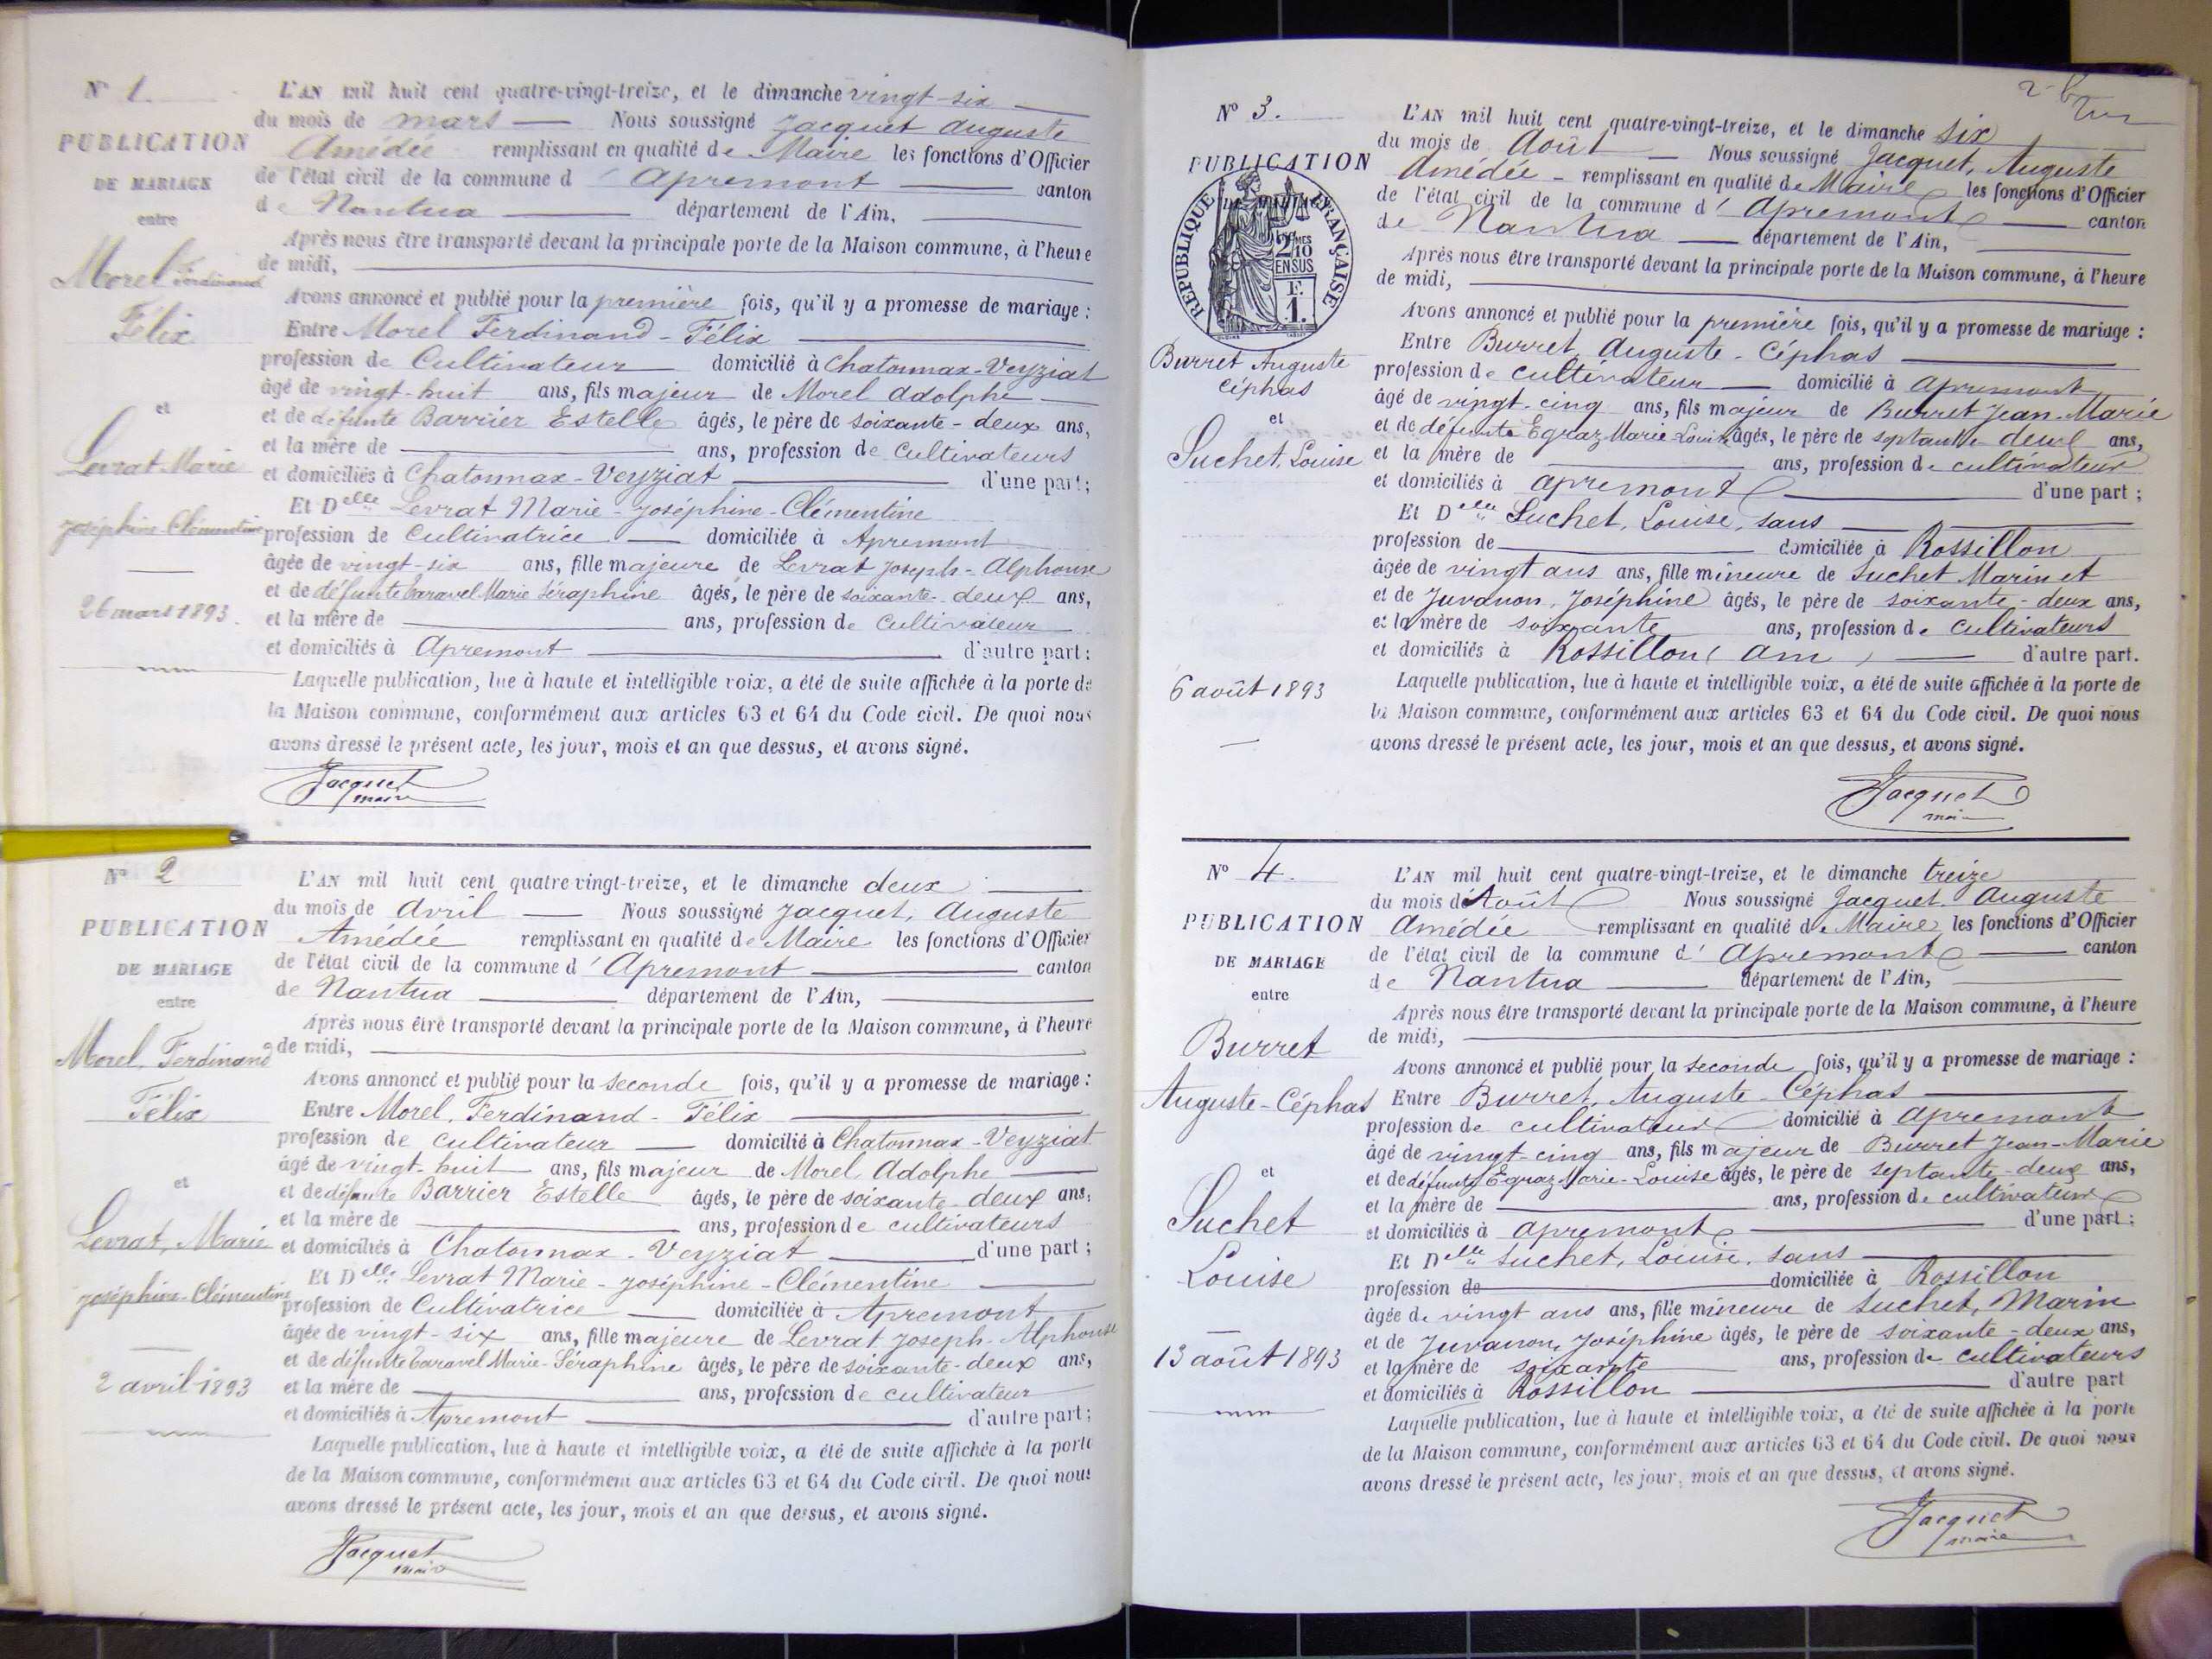 N° 1.
PUBLICATION
DE MARIAGE
entre
Morel Ferdinand
Félix
et
Levrat Marie
Joséphine-Clémentine
26 mars 1893.
L'AN mil huit cent quatre-vingt-treize, et le dimanche vingt-six
du mois de mars Nous soussigné Jacquet Auguste
Amédée remplissant en qualité de Maire les fonctions d'Officier
de l'état civil de la commune d'Apremont canton
de Nantua département de l'Ain,
Après nous être transporté devant la principale porte de la Maison commune, à l'heure
de midi,
Avons annoncé et publié pour la première fois, qu'il y a promesse de mariage :
Entre Morel Ferdinand-Félix
profession de Cultivateur domicilié à Chatonnax-Veyziat
âgé de vingt-huit ans, fils majeur de Morel Adolphe
et de défunte Barrier Estelle âgés, le père de soixante-deux ans,
et la mère de ans, profession de cultivateurs
et domiciliés à Chatonnax-Veyziat d'une part;
Et Delle Levrat Marie-Joséphine-Clémentine
profession de Cultivatrice domiciliée à Apremont
âgée de vingt-six ans, fille majeure de Levrat Joseph-Alphonse
et de défunte Caravel Marie Séraphine âgés, le père de soixante-deux ans,
et la mère de ans, profession de Cultivateur
et domiciliés à Apremont d'autre part:
Laquelle publication, lue à haute et intelligible voix, a été de suite affichée à la porte de
la Maison commune, conformément aux articles 63 et 64 du Code civil. De quoi nous
avons dressé le présent acte, les jour, mois et an que dessus, et avons signé.
Jacquet
maire
N° 2
PUBLICATION
DE MARIAGE
entre
Morel, Ferdinand
Félix
et
Levrat, Marie
Joséphine-Clémentine
2 avril 1893
L'AN mil huit cent quatre vingt-treize, et le dimanche deux
du mois de Avril Nous soussigné Jacquet, Auguste
Amédée remplissant en qualité de Maire les fonctions d'Officier
de l'état civil de la commune d'Apremont canton
de Nantua département de l'Ain,
Après nous être transporté devant la principale porte de la Maison commune, à l'heure
de midi,
Avons annoncé et publié pour la seconde fois, qu'il y a promesse de mariage :
Entre Morel, Ferdinand-Félix
profession de cultivateur domicilié à Chatonnax-Veyziat
âgé de vingt-huit ans, fils majeur de Morel Adolphe
et de défunte Barrier Estelle âgés, le père de soixante-deux ans,
et la mère de ans, profession de cultivateurs
et domiciliés à Chatonnax-Veyziat d'une part ;
Et Delle Levrat Marie-Joséphine-Clémentine
profession de Cultivatrice domiciliée à Apremont
âgée de vingt-six ans, fille majeure de Levrat Joseph-Alphonse
et de défunte Caravel Marie-Séraphine âgés, le père de soixante-deux ans,
et la mère de ans, profession de cultivateur
et domiciliés à Apremont d'autre part ;
Laquelle publication, lue à haute et intelligible voix, a été de suite affichée à la porte
de la Maison commune, conformément aux articles 63 et 64 du Code civil. De quoi nous
avons dressé le présent acte, les jour, mois et an que dessus, et avons signé.
Jacquet
maire
N° 3.
PUBLICATION
DE MARIAGE
RÉPUBLIQUE FRANÇAISE
2 MES
10
EN SUS
F.
1.
Burret Auguste
Céphas
et
Suchet, Louise
6 août 1893
L'AN mil huit cent quatre-vingt-treize, et le dimanche six
du mois de Août Nous soussigné Jacquet, Auguste
Amédée remplissant en qualité de Maire les fonctions d'Officier
de l'état civil de la commune d'Apremont canton
de Nantua département de l'Ain,
Après nous être transporté devant la principale porte de la Maison commune, à l'heure
de midi,
Avons annoncé et publié pour la première fois, qu'il y a promesse de mariage :
Entre Burret Auguste-Céphas
profession de cultivateur domicilié à Apremont
âgé de vingt-cinq ans, fils majeur de Burret Jean-Marie
et de défunte Egraz Marie Louise âgés, le père de septante deux ans,
et la mère de ans, profession de cultivateur
et domiciliés à Apremont d'une part ;
Et Delle Suchet, Louise, sans
profession de domiciliée à Rossillon
âgée de vingt ans ans, fille mineure de Suchet Marin et
et de Juvanon, Joséphine âgés, le père de soixante-deux ans,
et la mère de soixante ans, profession de cultivateurs
et domiciliés à Rossillon (Ain) d'autre part.
Laquelle publication, lue à haute et intelligible voix, a été de suite affichée à la porte de
la Maison commune, conformément aux articles 63 et 64 du Code civil. De quoi nous
avons dressé le présent acte, les jour, mois et an que dessus, et avons signé.
Jacquet
maire
N° 4.
PUBLICATION
DE MARIAGE
entre
Burret
Auguste-Céphas
et
Suchet
Louise
13 août 1893
L'AN mil huit cent quatre-vingt-treize, et le dimanche treize
du mois de Août Nous soussigné Jacquet Auguste
Amédée remplissant en qualité de Maire les fonctions d'Officier
de l'état civil de la commune d'Apremont canton
de Nantua département de l'Ain,
Après nous être transporté devant la principale porte de la Maison commune, à l'heure
de midi,
Avons annoncé et publié pour la seconde fois, qu'il y a promesse de mariage :
Entre Burret, Auguste-Céphas
profession de cultivateur domicilié à Apremont
âgé de vingt-cinq ans, fils majeur de Burret Jean-Marie
et de défunte Egraz Marie-Louise âgés, le père de septante-deux ans,
et la mère de ans, profession de cultivateur
et domiciliés à Apremont d'une part ;
Et Delle Suchet, Louise, sans
profession de domiciliée à Rossillon
âgée de vingt ans ans, fille mineure de Suchet, Marin
et de Juvanon, Joséphine âgés, le père de soixante-deux ans,
et la mère de soixante ans, profession de cultivateurs
et domiciliés à Rossillon d'autre part
Laquelle publication, lue à haute et intelligible voix, a été de suite affichée à la porte
de la Maison commune, conformément aux articles 63 et 64 du Code civil. De quoi nous
avons dressé le présent acte, les jour, mois et an que dessus, et avons signé.
Jacquet
maire